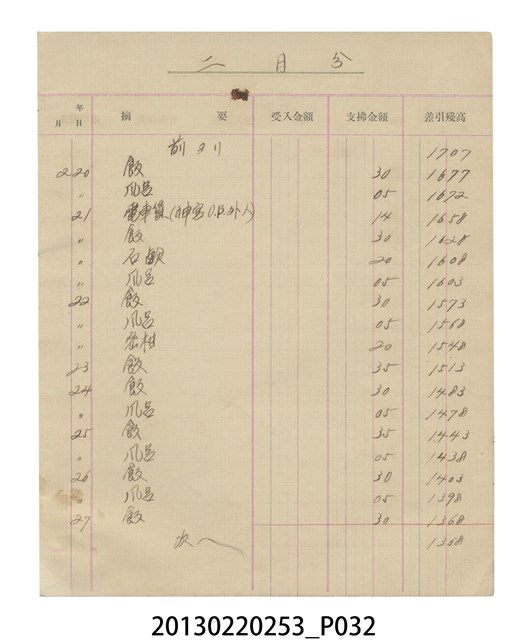 二月分
年
月 日 摘要 受入金額 支拂金額 差引殘高
前ヨリ 1707
2 20 飯 30 1677
〃 風呂 05 1672
21 電車賃(神宮 14 1658
〃 飯 30 1628
〃 石鹸 20 1608
〃 風呂 05 1603
22 飯 30 1573
〃 風呂 05 1568
〃 蜜柑 20 1548
23 飯 35 1513
24 飯 30 1483
〃 風呂 05 1478
25 飯 35 1443
〃 風呂 05 1438
26 飯 30 1403
〃 風呂 05 1398
27 飯 30 1368
次へ 1368
20130220253_P032